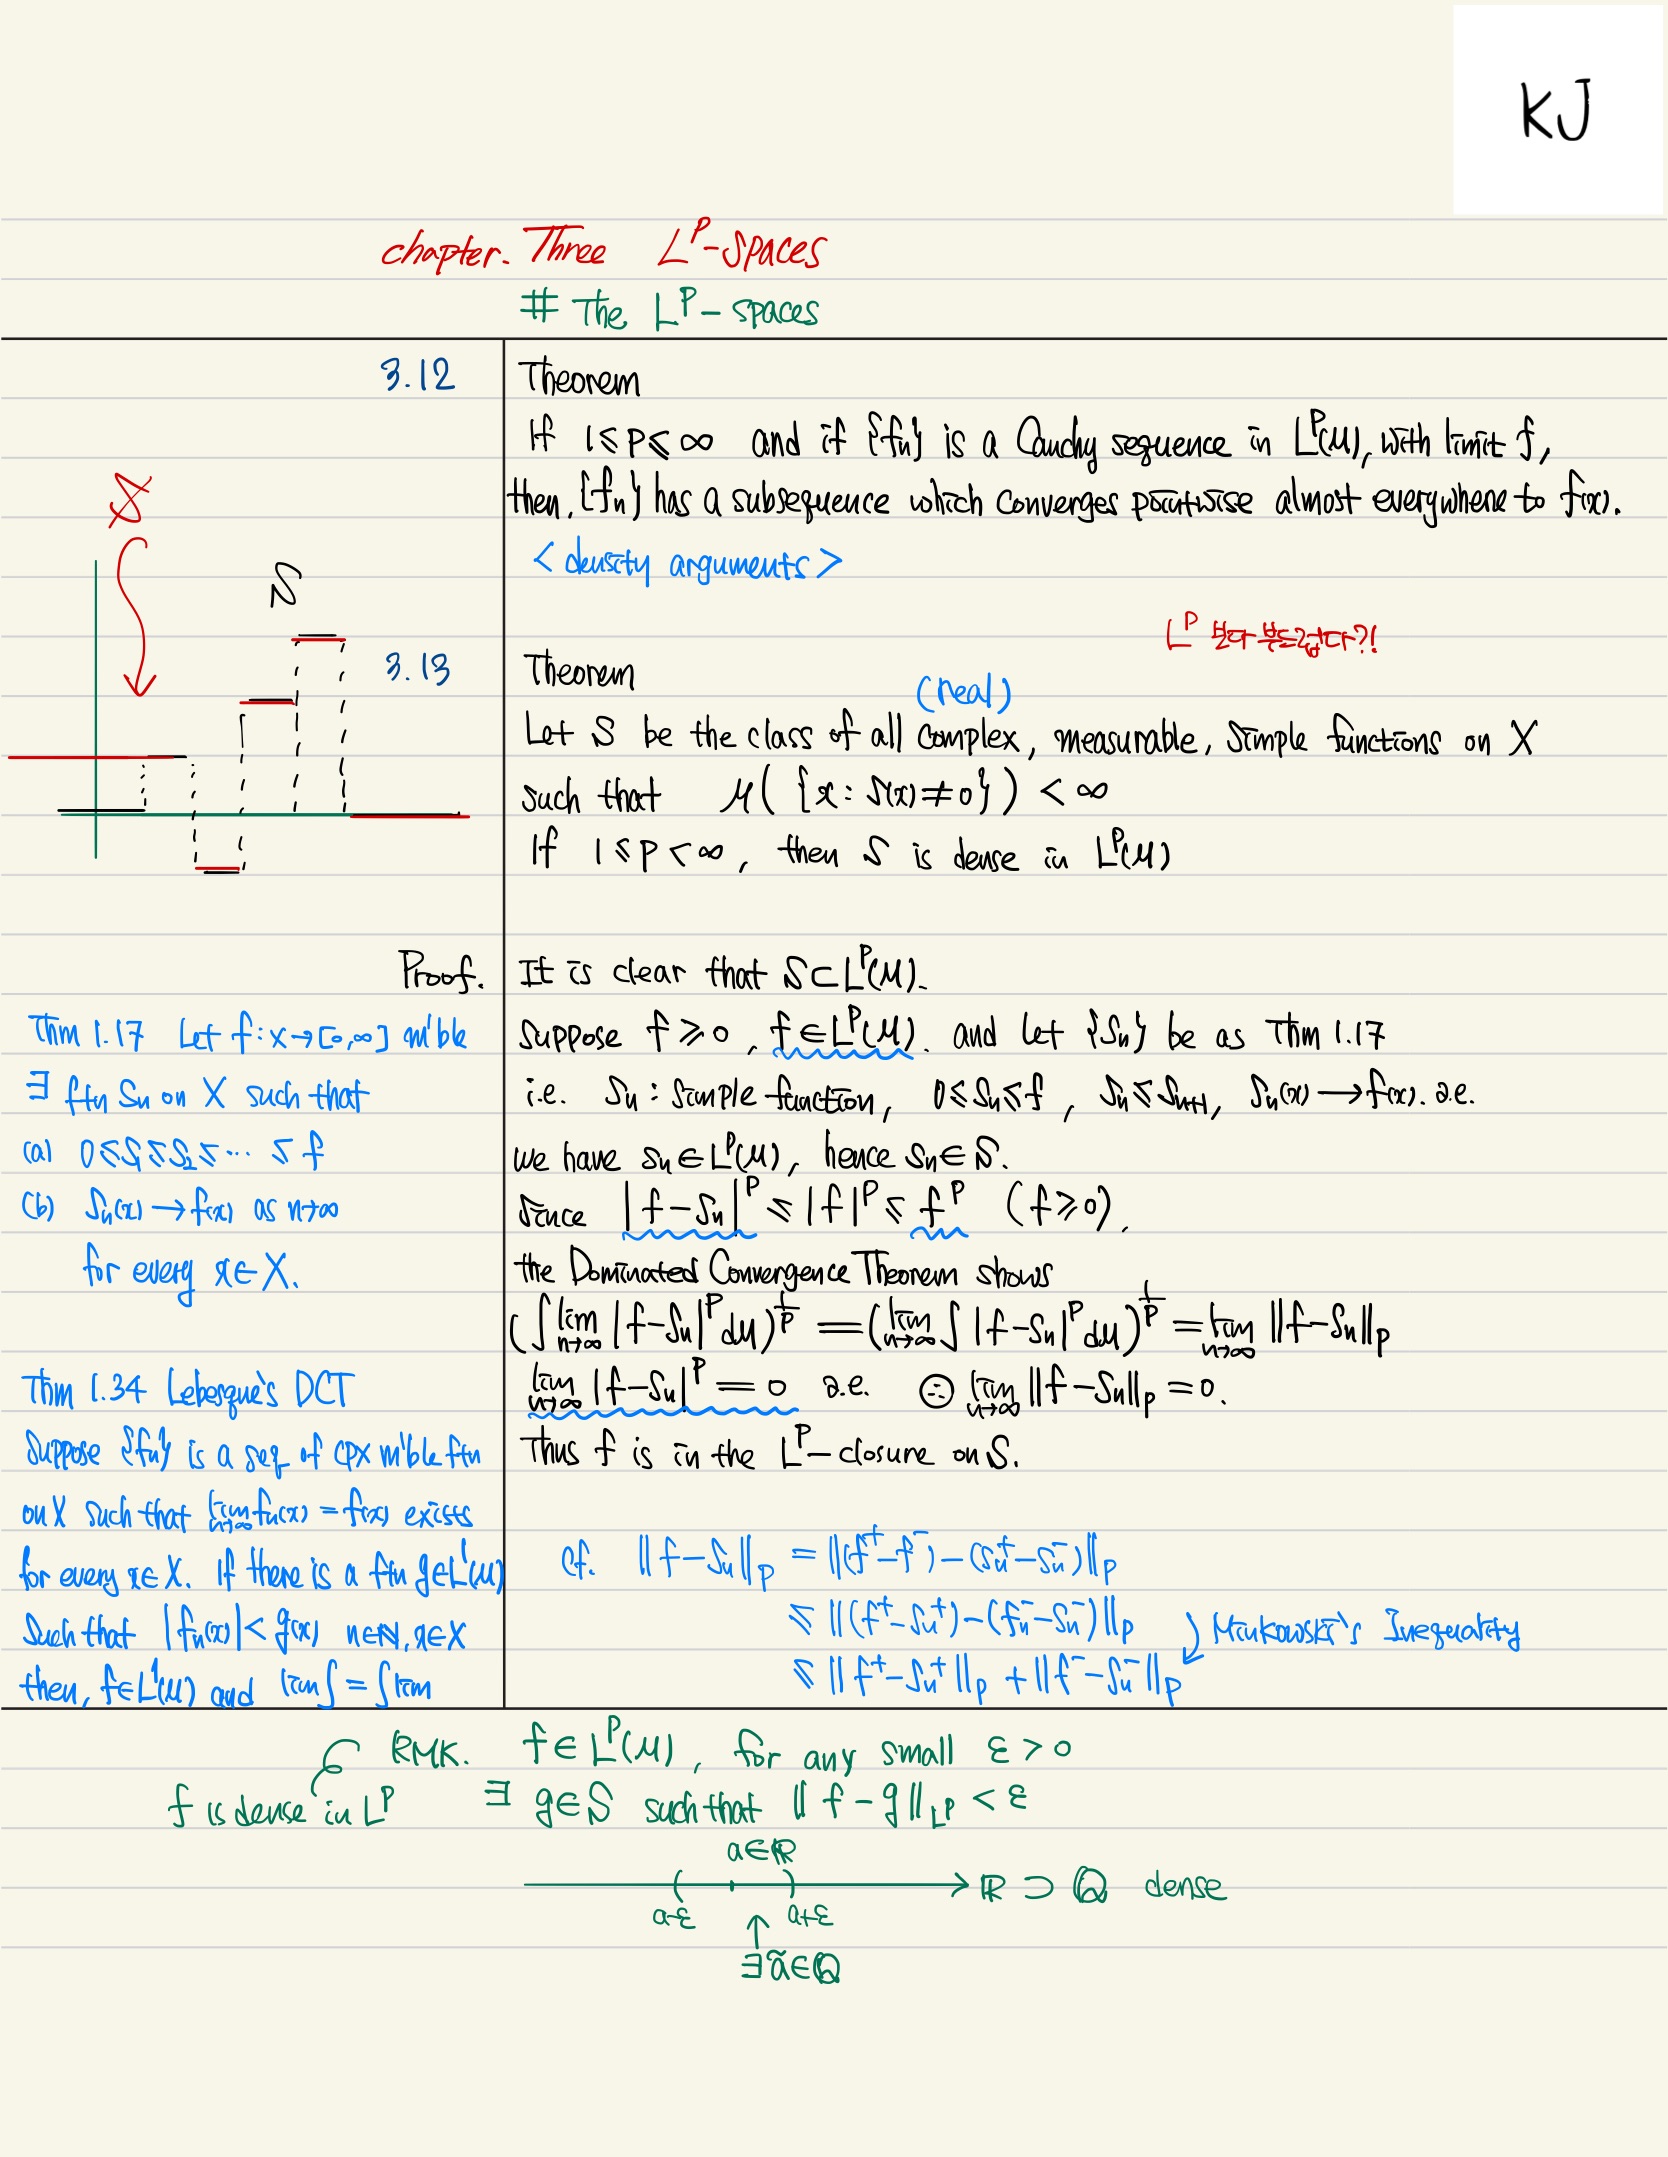 KJ
chapter. Three L^p-spaces
# The L^p-spaces
3.12 Theorem
If 1≤p≤∞ and if {fn} is a Cauchy sequence in L^p(μ), with limit f,
then, {fn} has a subsequence which converges pointwise almost everywhere to f(x).
< density arguments >
S
S
L^p 보다 부드럽다?!
3.13 Theorem
(real)
Let S be the class of all complex, measurable, simple functions on X
such that μ( {x : s(x)≠0} ) < ∞
If 1≤p<∞, then S is dense in L^p(μ)
Proof. It is clear that S⊂L^p(μ).
suppose f≥0, f∈L^p(μ). and let {Sn} be as Thm 1.17
i.e. Sn : simple function, 0≤Sn≤f, Sn≤Sn+1, Sn(x)→f(x). a.e.
we have sn∈L^p(μ), hence sn∈S.
since |f-Sn|^p ≤ |f|^p ≤ f^p (f≥0),
the Dominated Convergence Theorem shows
(∫ lim n→∞ |f-Sn|^p dμ)^1/p = (lim n→∞ ∫ |f-Sn|^p dμ)^1/p = lim n→∞ ‖f-Sn‖p
lim n→∞ |f-Sn|^p = 0 a.e. ∴ lim n→∞ ‖f-Sn‖p = 0.
Thus f is in the L^p-closure on S.
cf. ‖f-Sn‖p = ‖(f⁺-f⁻)-(sn⁺-sn⁻)‖p
≤ ‖(f⁺-Sn⁺)-(fn⁻-Sn⁻)‖p
Minkowski's Inequality
≤ ‖f⁺-Sn⁺‖p + ‖f⁻-Sn⁻‖p
Thm 1.17 Let f:x→[0,∞] m'ble
∃ ftn Sn on X such that
(a) 0≤S1≤S2≤ ··· ≤f
(b) Sn(x)→f(x) as n→∞
for every x∈X.
Thm 1.34 Lebesgue's DCT
suppose {fn} is a seq of cpx m'ble ftn
on X such that lim n→∞ fn(x) = f(x) exists
for every x∈X. If there is a ftn g∈L¹(μ)
such that |fn(x)|<g(x) n∈ℕ, x∈X
then, f∈L¹(μ) and lim∫=∫lim
RMK. f∈L^p(μ), for any small ε>0
f is dense in L^p
∃ g∈S such that ‖f-g‖L^p < ε
a∈ℝ
ℝ ⊃ ℚ dense
a-ε a+ε
∃ã∈ℚ